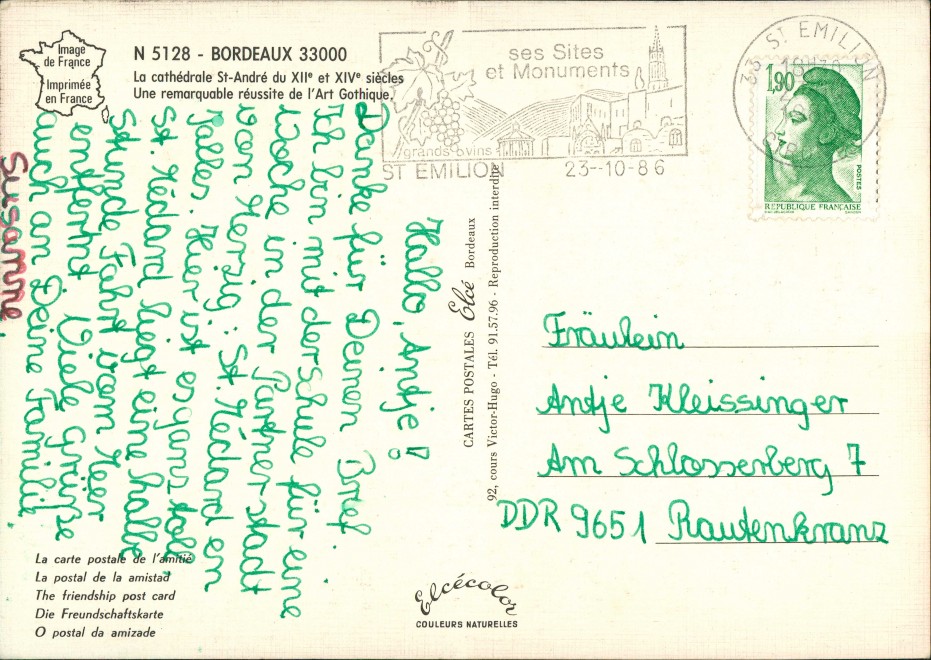 Image
de France
Imprimée
en France
N 5128 - BORDEAUX 33000
La cathédrale St-André du XIIe et XIVe siècles
Une remarquable réussite de l'Art Gothique.
ses Sites
et Monuments
grands vins
ST EMILION
23-10-86
33 ST EMILION
1,90
POSTES
REPUBLIQUE FRANÇAISE
Hallo, Antje!
Danke für Deinen Brief.
Ich bin mit der Schule für eine
Woche in der Partnerstadt
von Herzig: St. Médard en
Jalles. Hier ist es ganz toll.
St. Médard liegt eine halbe
Stunde Fahrt vom Meer
entfernt. Viele Grüße
auch an Deine Familie
Susanne
CARTES POSTALES Elcé Bordeaux
92, cours Victor-Hugo - Tél. 91.57.96 - Reproduction interdite
Fräulein
Antje Kleissinger
Am Schlosserberg 7
DDR 9651 Rautenkranz
La carte postale de l'amitié
La postal de la amistad
The friendship post card
Die Freundschaftskarte
O postal da amizade
Elcécolor
COULEURS NATURELLES